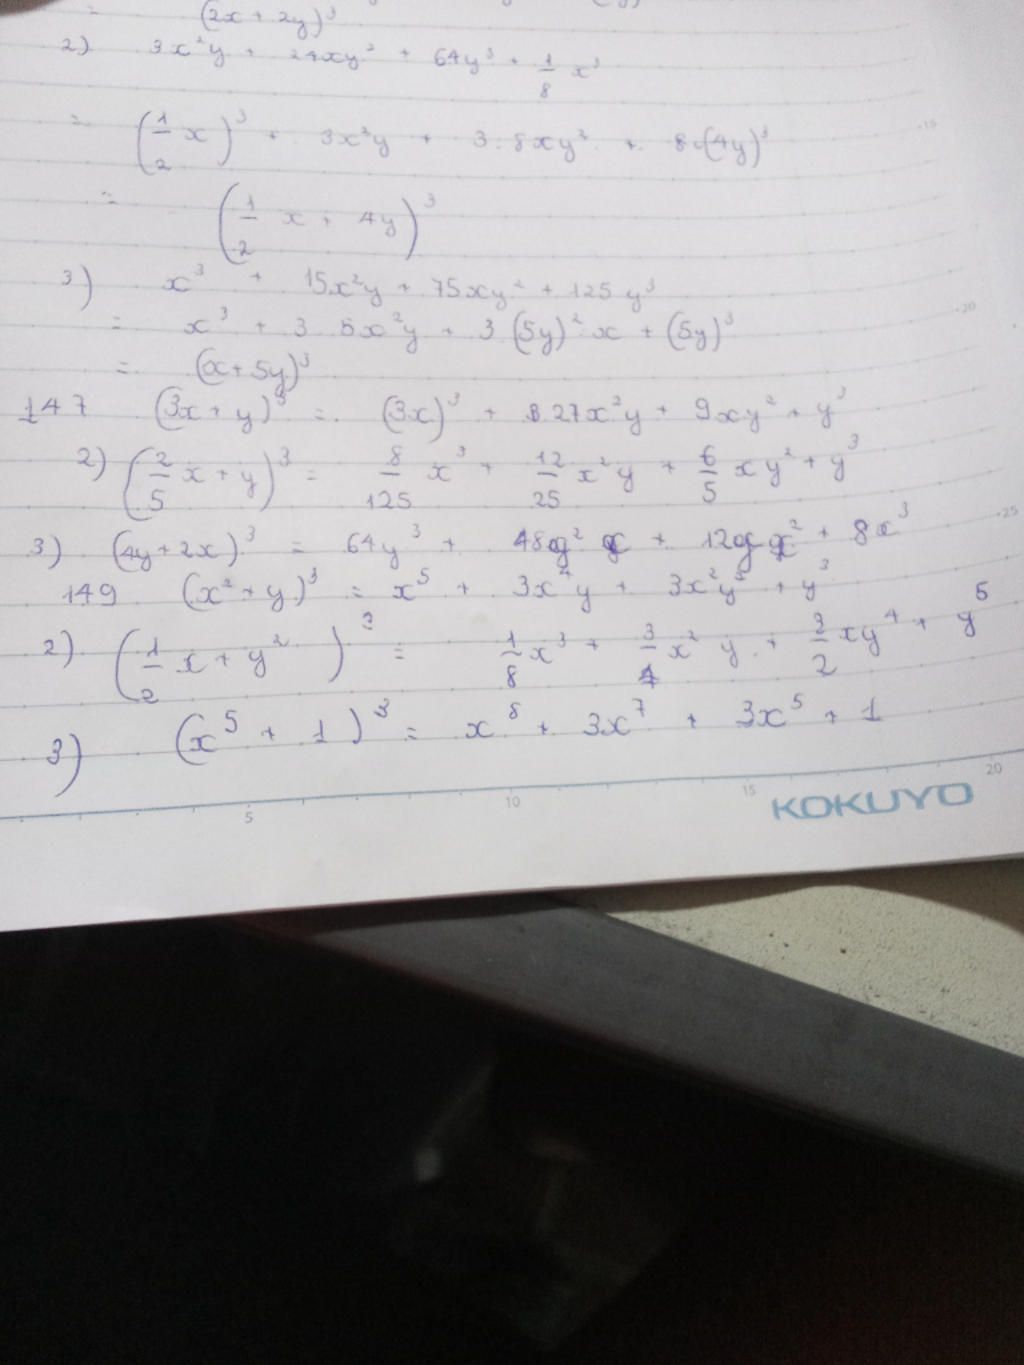 = (2x + 2y)³
2) 3x²y + 24xy² + 64y³ + 1/8 x³
= (1/2 x)³ + 3x²y + 3.8xy² + 8.(4y)³
= (1/2 x + 4y)³
3) x³ + 15x²y + 75xy² + 125y³
= x³ + 3 5x²y + 3 (5y)² x + (5y)³
= (x+5y)³
147 (3x + y)³ = (3x)³ + 27x²y + 9xy² + y³
2) (2/5 x + y)³ = 8/125 x³ + 12/25 x²y + 6/5 xy² + y³
3) (4y + 2x)³ = 64y³ + 48y² x + 12y x² + 8x³
149 (x² + y)³ = x⁵ + 3x⁴y + 3x²y² + y³
2) (1/2 x + y²)³ = 1/8 x³ + 3/4 x² y + 3/2 xy⁴ + y⁵
3) (x⁵ + 1)³ = x⁸ + 3x⁷ + 3x⁵ + 1
5 10 15 20
KOKUYO